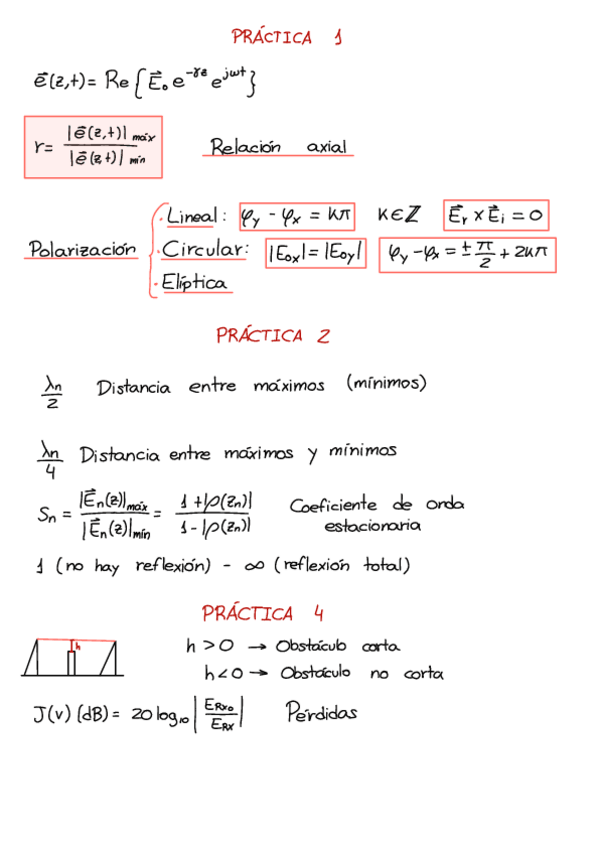 PRÁCTICA 1
e⃗(z,t) = Re{E⃗₀ e^(-γz) e^(jωt)}
r = |e⃗(z,t)|máx / |e⃗(z,t)|mín   Relación axial
· Lineal: φy - φx = kπ   k∈ℤ   E⃗r × E⃗i = 0
Polarización · Circular: |E₀x| = |E₀y|   φy - φx = ± π/2 + 2kπ
· Elíptica
PRÁCTICA 2
λn/2 Distancia entre máximos (mínimos)
λn/4 Distancia entre máximos y mínimos
Sn = |E⃗n(z)|máx / |E⃗n(z)|mín = 1 + |ρ(zn)| / 1 - |ρ(zn)|   Coeficiente de onda
estacionaria
1 (no hay reflexión) - ∞ (reflexión total)
PRÁCTICA 4
h   h > 0 → Obstáculo corta
h < 0 → Obstáculo no corta
J(v) (dB) = 20 log₁₀ |ERX₀ / ERX|   Pérdidas